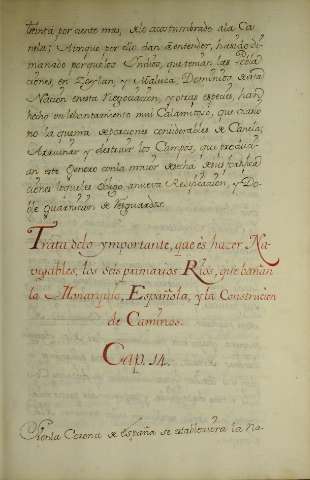 treinta por ciento mas, de lo acostumbrado a la Ca
nela; Aunque por ello dan á entender, ha sido di
manado porque los Indios, que toman las
ciones, en Zeylan, y Maluca, Dominios de esta
Nacion en esta Negociacion, y otras especies, han
hecho un levantamiento mui Calamitoso, que
no la quema de porciones considerables de Canela;
Arruinar y destruir los Campos, que produ
an este Genero con la maior de sus fortifica
ciones lo que les obligo, a nueva Redificacion, y Do
ble guarnicion de resguardos.
Trata de lo ymportante, que és hazer Na
vigables, los seis primarios Rios, que bañan
la Monarquia, Española, y la Construcion
de Caminos.
Cap. 14.
Si en la Corona de España se establesiera la Na-